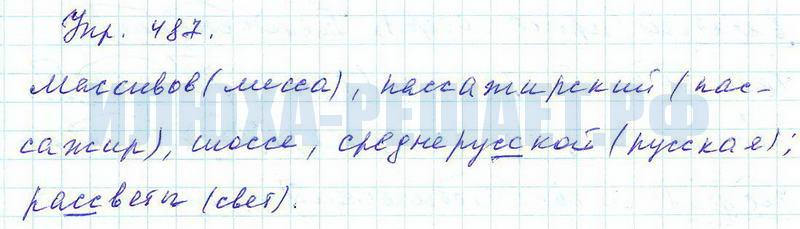 Упр. 487.
Массивов (масса), пассажирский (пас-
сажир), шоссе, среднерусской (русская);
рассветы (свет).
ИЛЮХА-РЕШАЕТ.РФ